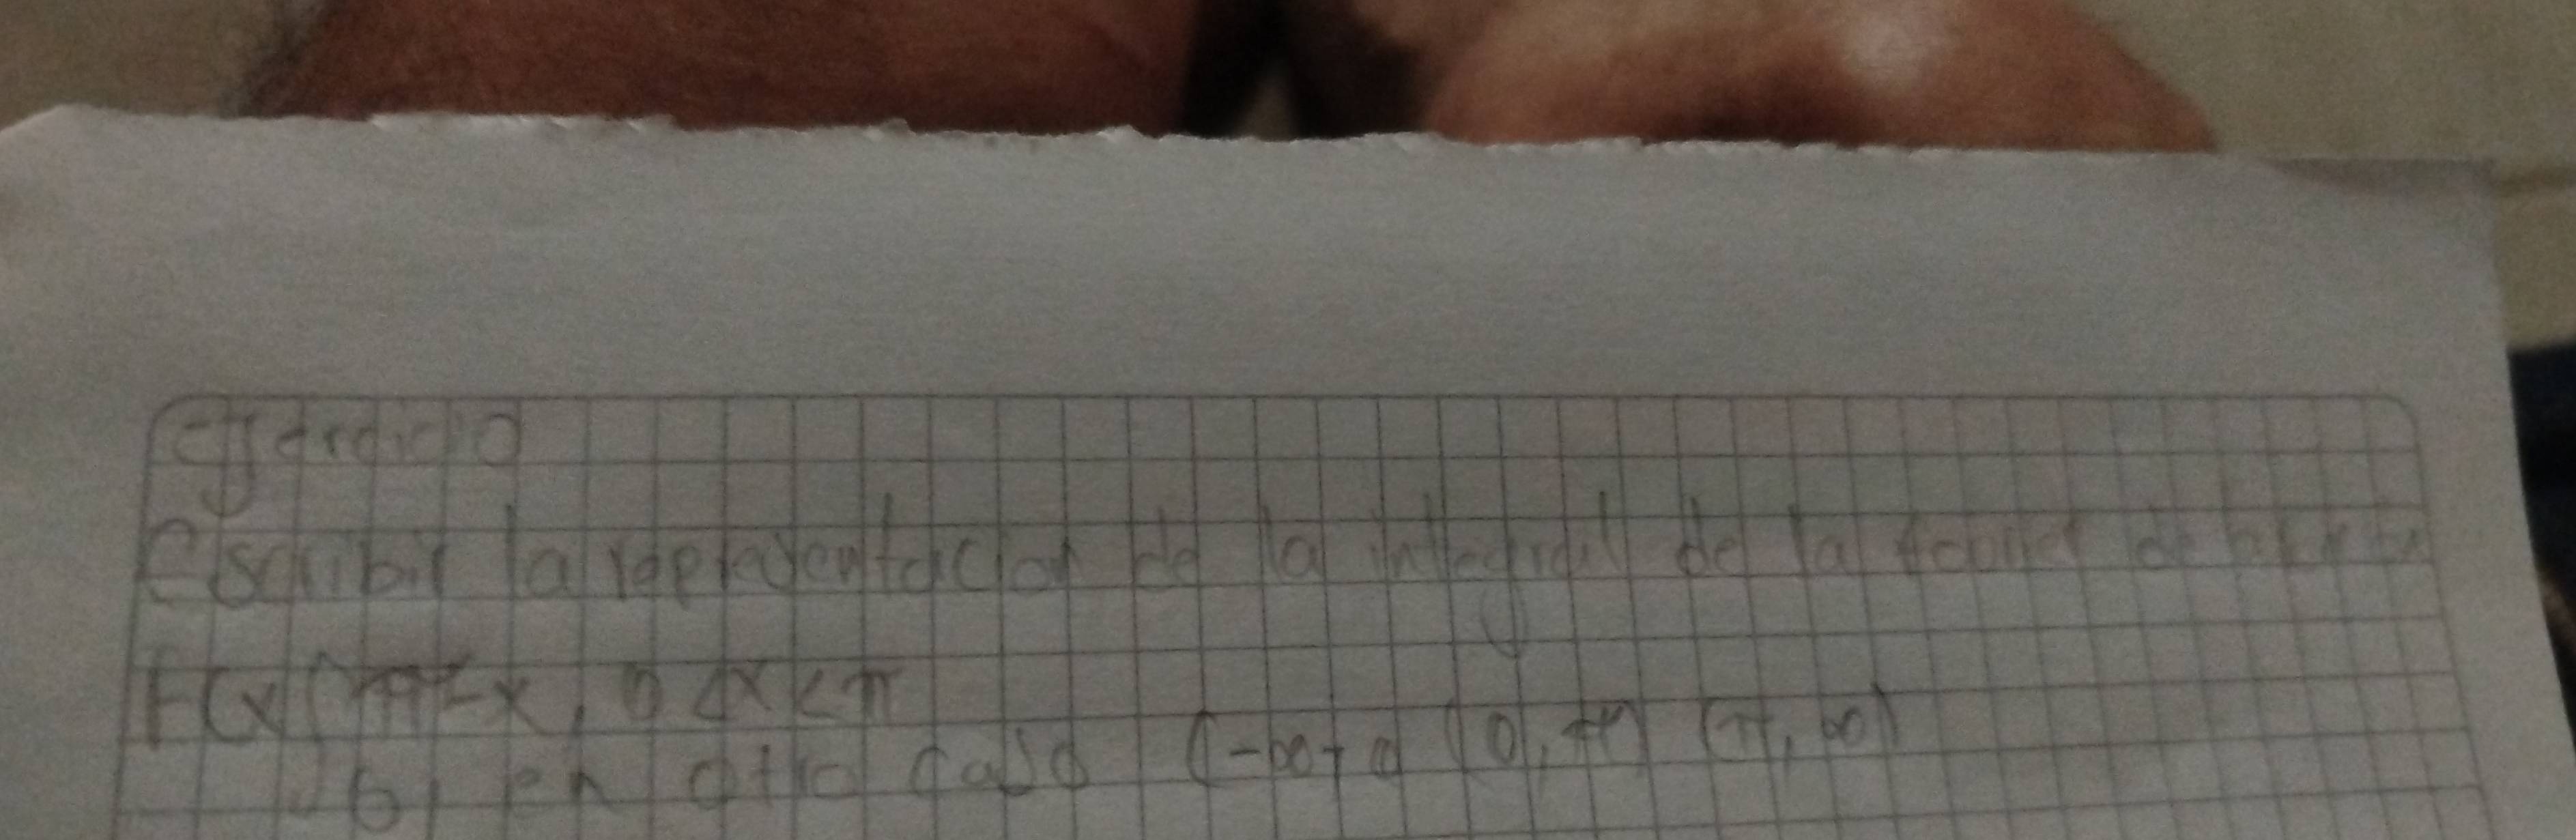 ejercicio
Escribir la representacion de la integral de la fourier de
F(x){π-x, 0<x<π
0, en otro caso (-∞, 0 (0, π) (π, ∞)